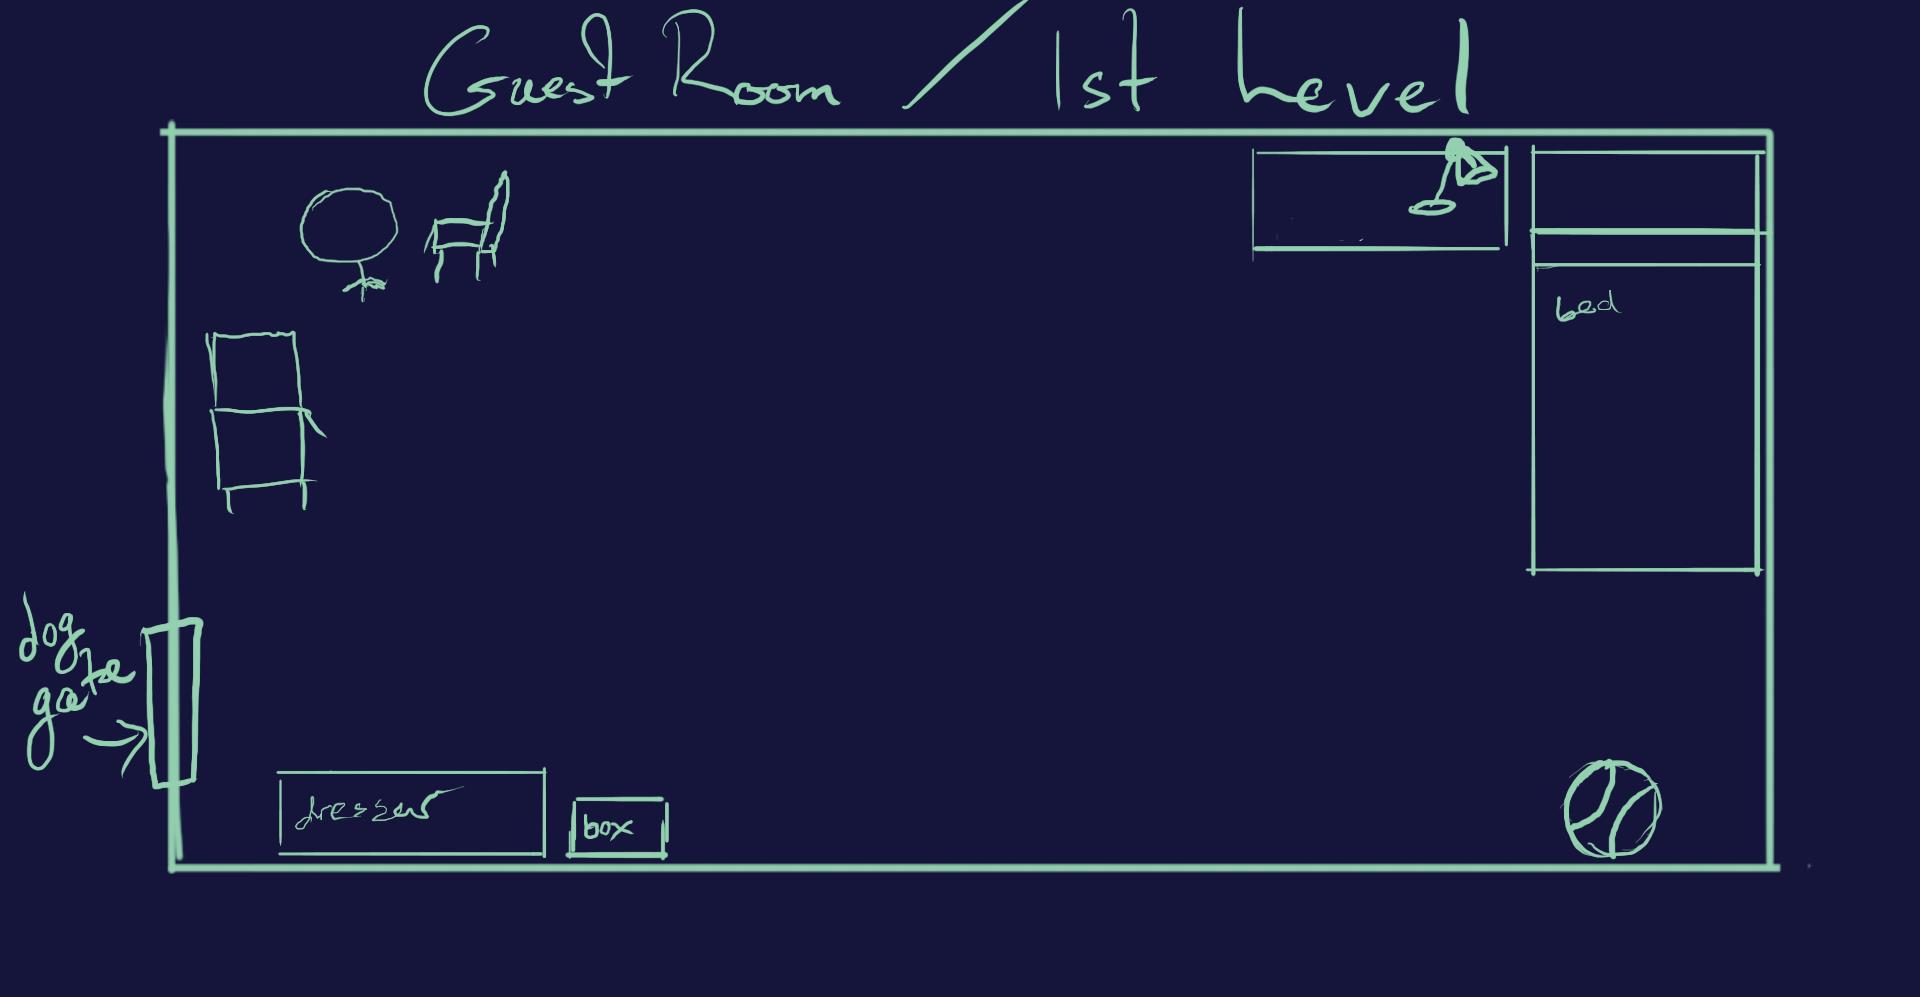 Guest Room / 1st Level
bed
dog
gate
dresser
box